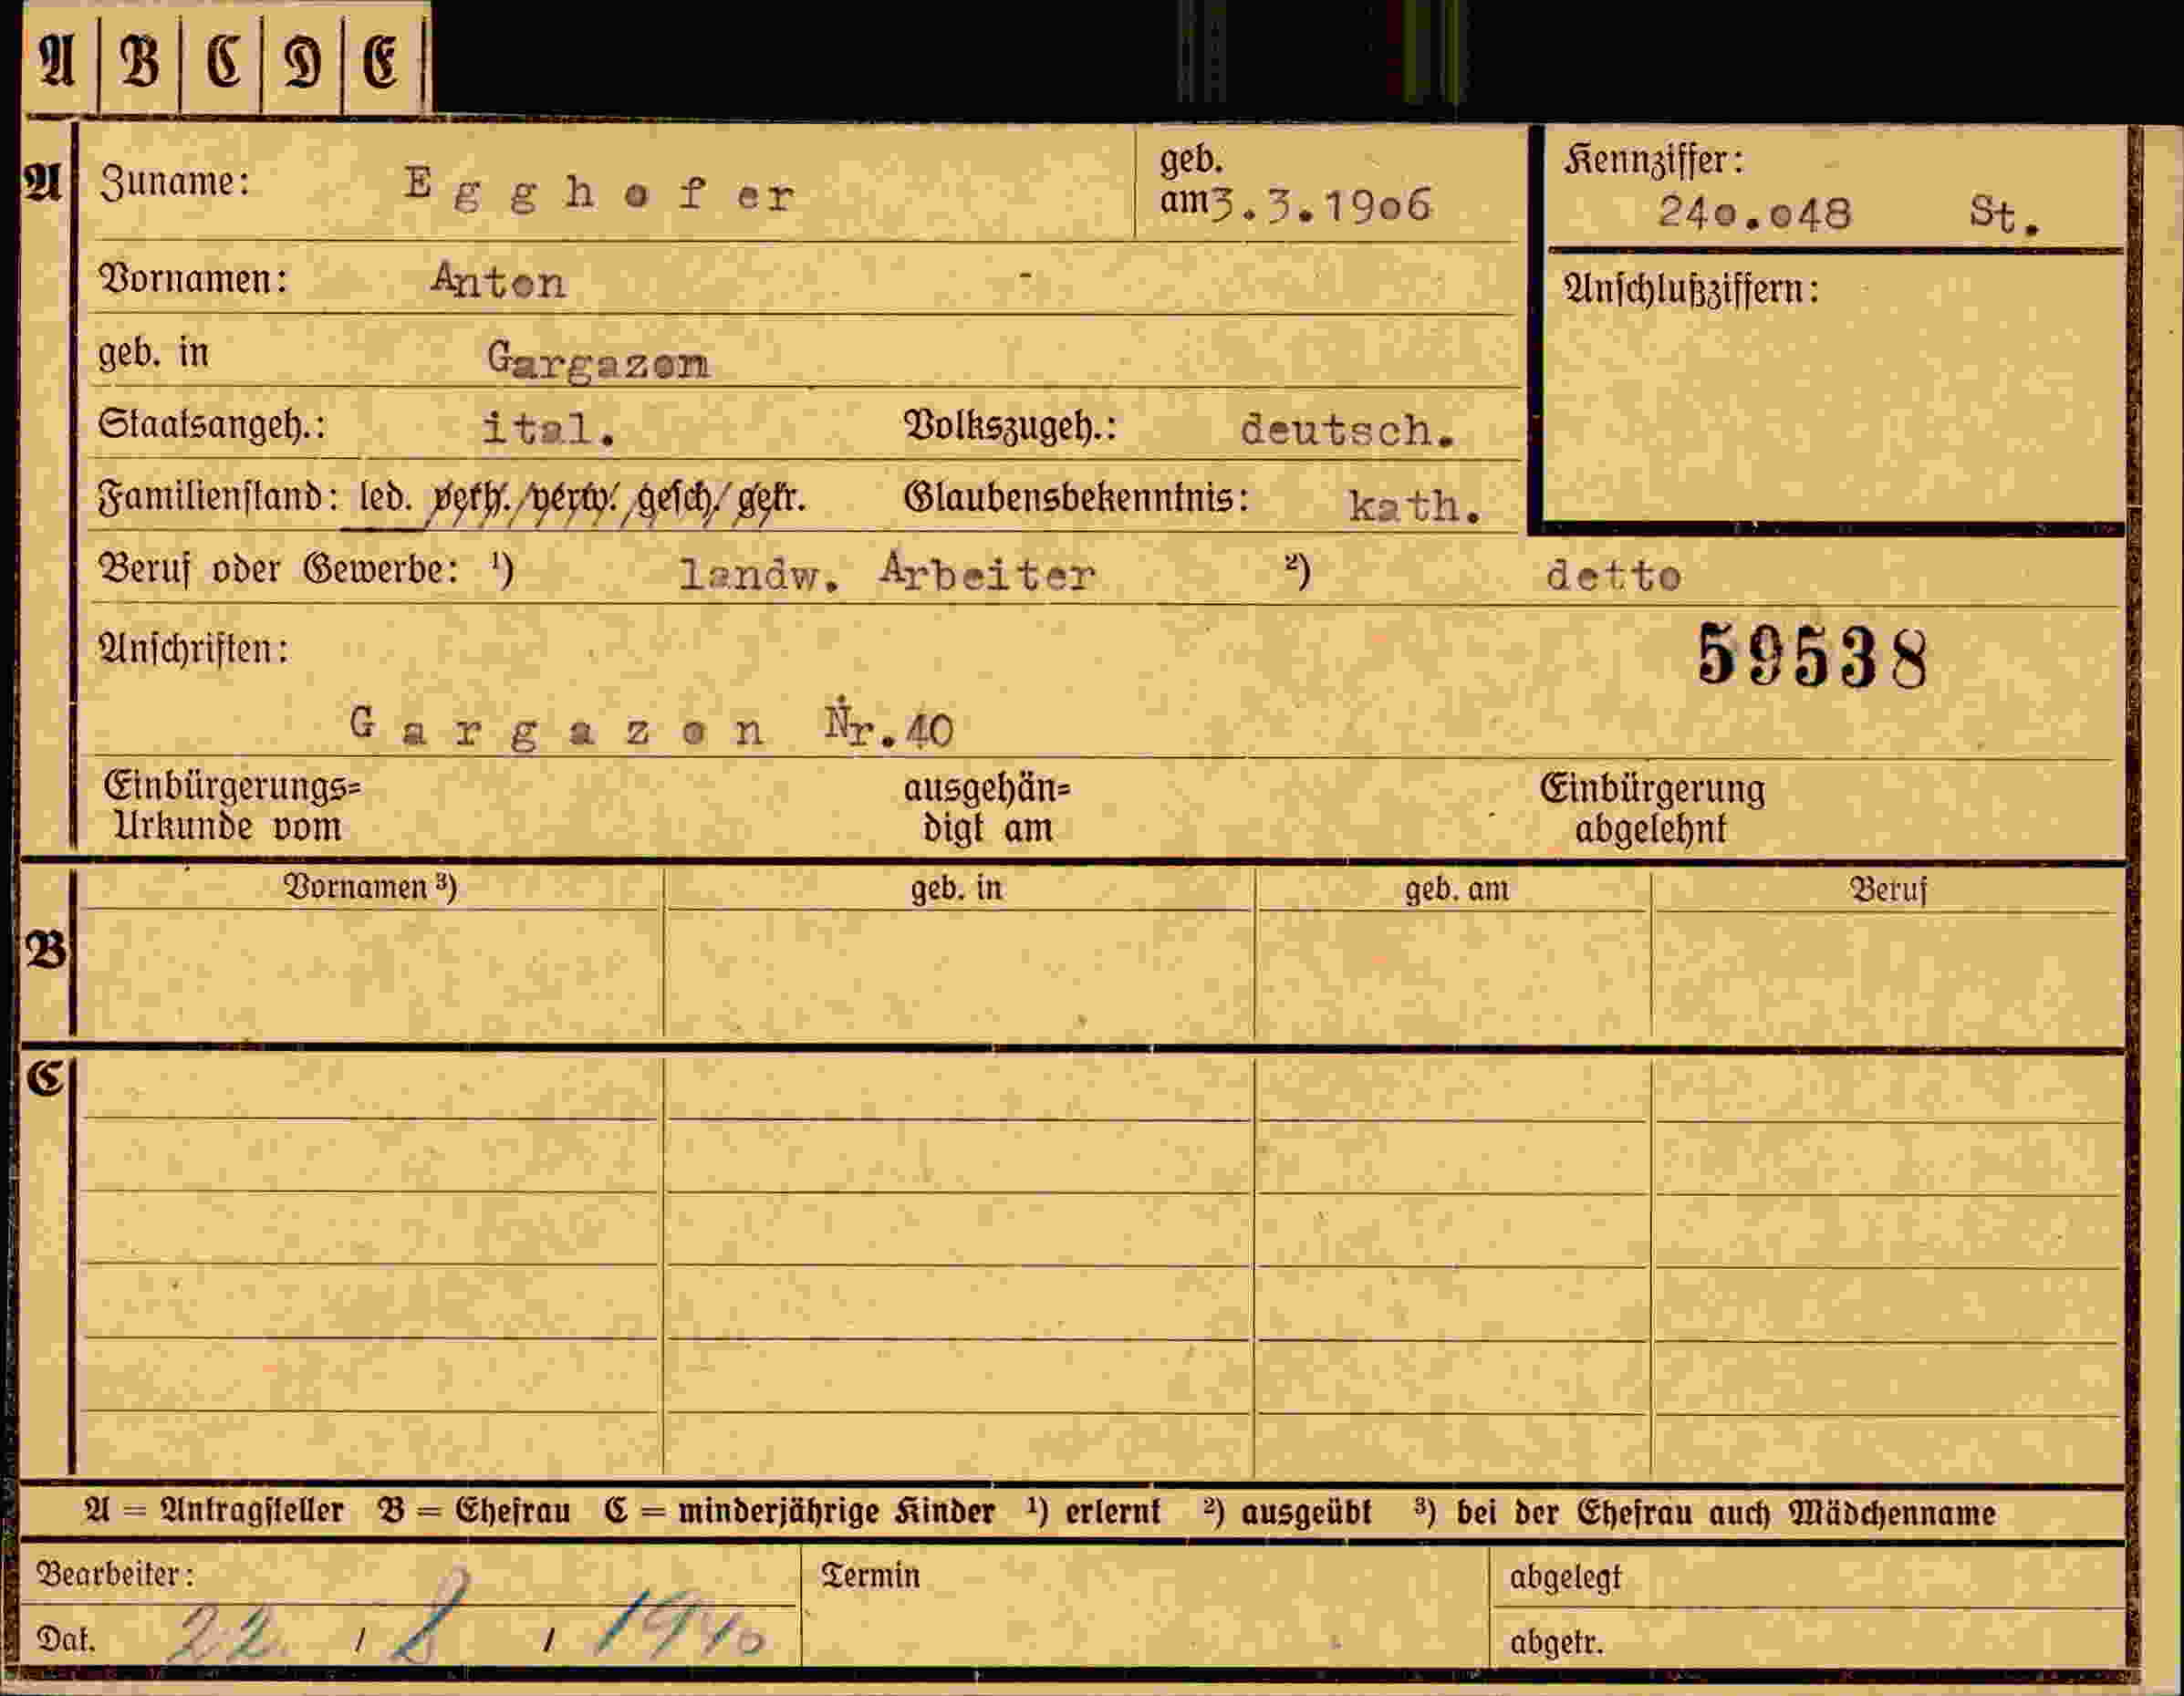 A B C D E
A Zuname: Egghofer geb. am 3.3.1906 Kennziffer: 240.048 St.
Vornamen: Anton Anschlußziffern:
geb. in Gargazon
Staatsangeh.: ital. Volkszugeh.: deutsch.
Familienstand: led. verh./verw./gesch/getr. Glaubensbekenntnis: kath.
Beruf oder Gewerbe: ¹) landw. Arbeiter ²) detto
Anschriften: 59538
Gargazon Nr.40
Einbürgerungs= ausgehän= Einbürgerung
Urkunde vom digt am abgelehnt
Vornamen ³) geb. in geb. am Beruf
B
C
A = Antragsteller B = Ehefrau C = minderjährige Kinder ¹) erlernt ²) ausgeübt ³) bei der Ehefrau auch Mädchenname
Bearbeiter: Termin abgelegt
Dat. 22. / 8 / 1940 abgetr.